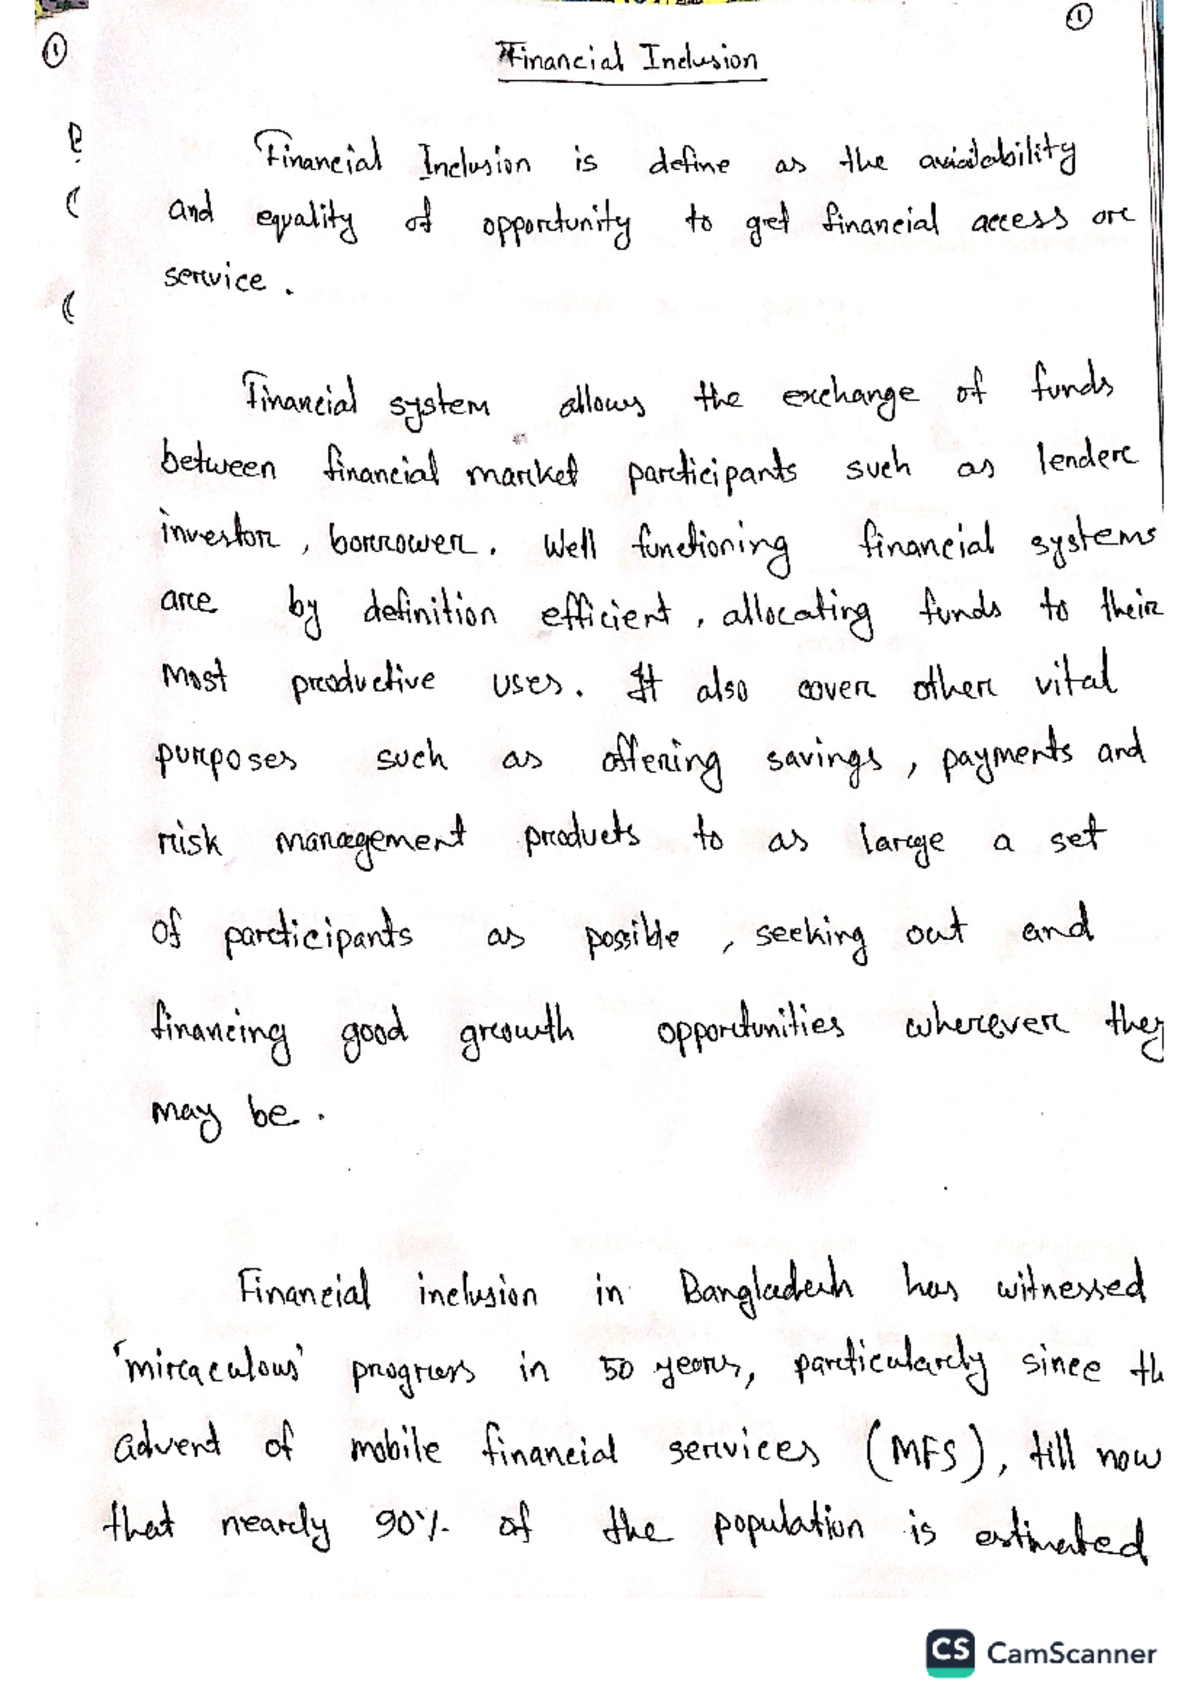 ①
①
Financial Inclusion
Financial Inclusion is define as the availability
and equality of opportunity to get financial access or
service.
Financial system allows the exchange of funds
between financial market participants such as lender
investor, borrower. Well functioning financial systems
are by definition efficient, allocating funds to their
most productive uses. It also cover other vital
purposes such as offering savings, payments and
risk management products to as large a set
of participants as possible, seeking out and
financing good growth opportunities wherever they
may be.
Financial inclusion in Bangladesh has witnessed
'miraculous' progress in 50 years, particularly since th
advent of mobile financial services (MFS), till now
that nearly 90% of the population is estimated
CS CamScanner